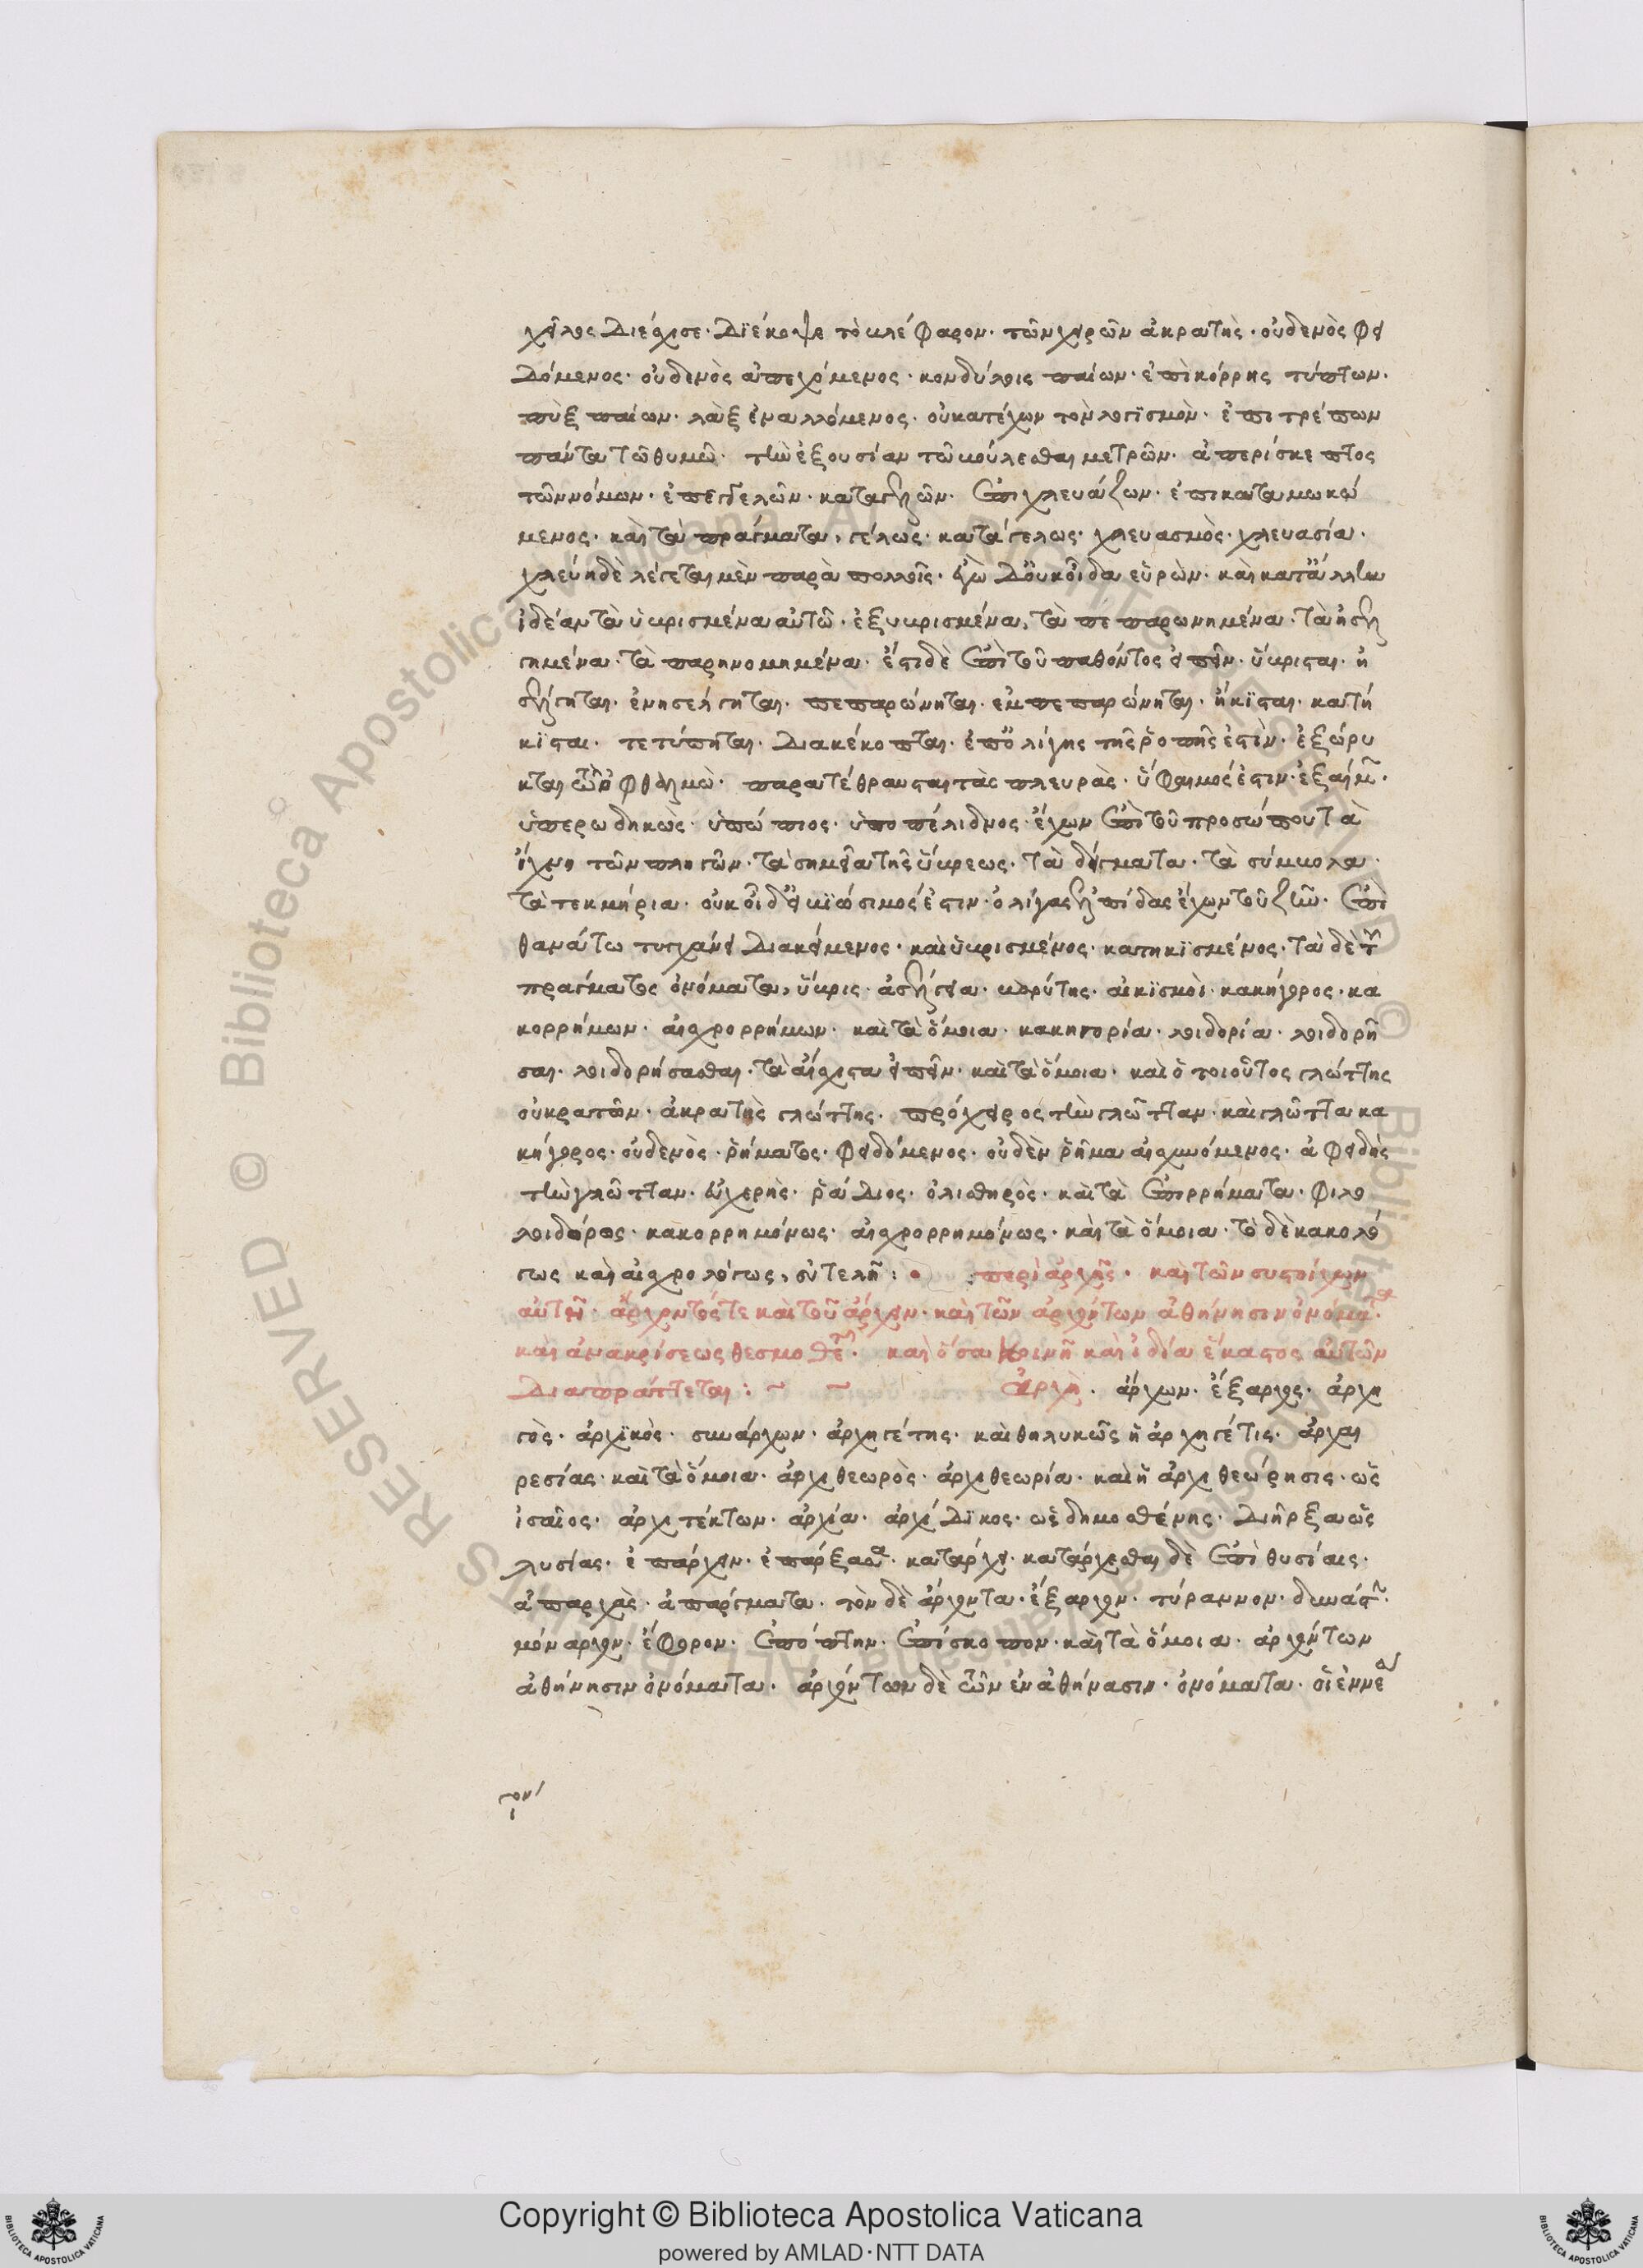 χεῖλος διέσχισε· διέκοψε τὸ βλέφαρον· τῶν χειρῶν ἀκρατὴς· οὐδενὸς φει
δόμενος· οὐδενὸς ἀπεχόμενος· κονδύλοις παίων· ἐπὶ κόρρης τύπτων·
πὺξ παίων· λὰξ ἐναλλόμενος· οὐ κατέχων τὸν λογϊσμὸν· ἐπιτρέπων
πάντα τῶ θυμῶ· τὴν ἐξουσίαν τῶ βούλεσθαι μετρῶν· ἀπερίσκεπτος
τῶν νόμων· ἐπεγγελῶν· καταγελῶν· ἐπιχλευάζων· ἐπικαταμωκώ
μενος· καὶ τὰ πράγματα, γέλως· κατάγελως· χλευασμὸς· χλευασία·
χλεύη δὲ λέγεται μὲν παρὰ πολλοῖς· ἐγὼ δ' οὐκ οἶδα εὑρὼν· καὶ κατ' ἄλλην
ἰδέαν τὰ ὑβρισμένα αὐτῶ· ἐξυβρισμένα, τὰ πεπαρωνημένα· τὰ ἠσελ
γημένα· τὰ παρηνομημένα· ἔστι δὲ ἐπὶ τοῦ παθόντος εἰπεῖν· ὕβρισται· ἠ
σέλγηται· ἐνησέλγηται· πεπαρώνηται· ἐμπεπαρώνηται· ἤκϊσται· κατή
κϊσται· τετύπηται· διακέκοπται· ἐπ' ὀλίγης τῆς ῥοπῆς ἐστὶν· ἐξώρυ
κται τὼ ὀφθαλμὼ· παρατέθραυσται τὰς πλευρὰς· ὕφαιμός ἐστιν· ἐξαιμ
ὑπερωδηκὼς· ὑπώπιος· ὑποπέλιδνος· ἔχων ἐπὶ τοῦ προσώπου τὰ
ἴχνη τῶν πληγῶν· τὰ σημεῖα τῆς ὕβρεως· τὰ δείγματα· τὰ σύμβολα·
τὰ τεκμήρια· οὐκ οἶδ' εἰ βϊώσιμός ἐστιν· ὀλίγας ἐλπίδας ἔχων τοῦ ζῆν· ἐπὶ
θανάτω τυγχάνει διακείμενος· καὶ ὑβρισμένος· κατηκϊσμένος· τὰ δὲ τοῦ
πράγματος ὀνόματα, ὕβρις· ἀσέλγεια· βαρύτης· αἰκϊσμοὶ· κακήγορος· κα
κορρήμων· αἰσχρορρήμων· καὶ τὰ ὅμοια· κακηγορία· λοιδορία· λοιδορῆ
σαι· λοιδορήσασθαι· τὰ αἴσχιστα εἰπεῖν· καὶ τὰ ὅμοια· καὶ ὁ τοιοῦτος γλώττης
οὐ κρατῶν· ἀκρατὴς γλώττης· πρόχειρος τὴν γλῶτταν· καὶ γλῶττα κα
κήγορος· οὐδενὸς· ῥήματος· φειδόμενος· οὐδὲν ῥῆμα αἰσχυνόμενος· ἀφειδὴς
τὴν γλῶτταν· εὐχερὴς· ῥάδιος· ὀλισθηρὸς· καὶ τὰ ἐπιρρήματα· φιλο
λοιδόρως· κακορρημόνως· αἰσχρορρημόνως· καὶ τὰ ὅμοια· τὸ δὲ κακολό
γως καὶ αἰσχρολόγως, εὐτελῆ: περὶ ἀρχῆς· καὶ τῶν συστοίχων
αὐτῆ· ἄρχοντός τε καὶ τοῦ ἄρχειν· καὶ τῶν ἀρχόντων ἀθήνησιν ὀνόματα·
καὶ ἀνακρίσεως θεσμοθετῶν· καὶ ὅσα κοινῆ καὶ ἰδία ἕκαστος αὐτῶν
διαπράττεται: ~ ~ ἀρχὴ· ἄρχων· ἔξαρχος· ἀρχη
γὸς· ἀρχϊκὸς· συνάρχων· ἀρχηγέτης· καὶ θηλυκῶς ἡ ἀρχηγέτις· ἀρχαι
ρεσίας· καὶ τὰ ὅμοια· ἀρχιθεωρὸς· ἀρχιθεωρία· καὶ ἡ ἀρχιθεώρησις· ὡς
ἰσαῖος· ἀρχιτέκτων· ἀρχία· ἀρχίδϊκος· ὡς δημοσθένης· διῆρξα ὡς
λυσίας· ἐπάρχειν· ἐπάρξασθαι· κατάρχει· κατάρχεσθαι δὲ ἐπὶ θυσίαις·
ἀπαρχὰς· ἀπάργματα· τὸν δὲ ἄρχοντα· ἔξαρχον· τύραννον· δυνάστην·
μόναρχον· ἔφορον· ἐπόπτην· ἐπίσκοπον· καὶ τὰ ὅμοια· ἀρχόντων
ἀθήνησιν ὀνόματα· ἀρχόντων δὲ τῶν ἐν ἀθήναισιν· ὀνόματα· οἱ ἐννέα
© Biblioteca Apostolica Vaticana ALL RIGHTS RESERVED
Copyright © Biblioteca Apostolica Vaticana
powered by AMLAD·NTT DATA